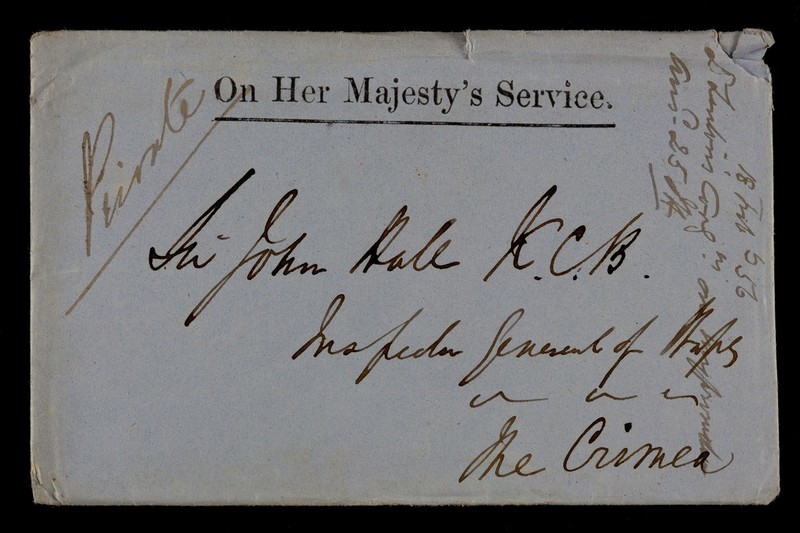 On Her Majesty's Service.
Private
Sir John Hall K.C.B.
Inspector General of Hosps
The Crimea
18 Feb 856
Ansd 25th